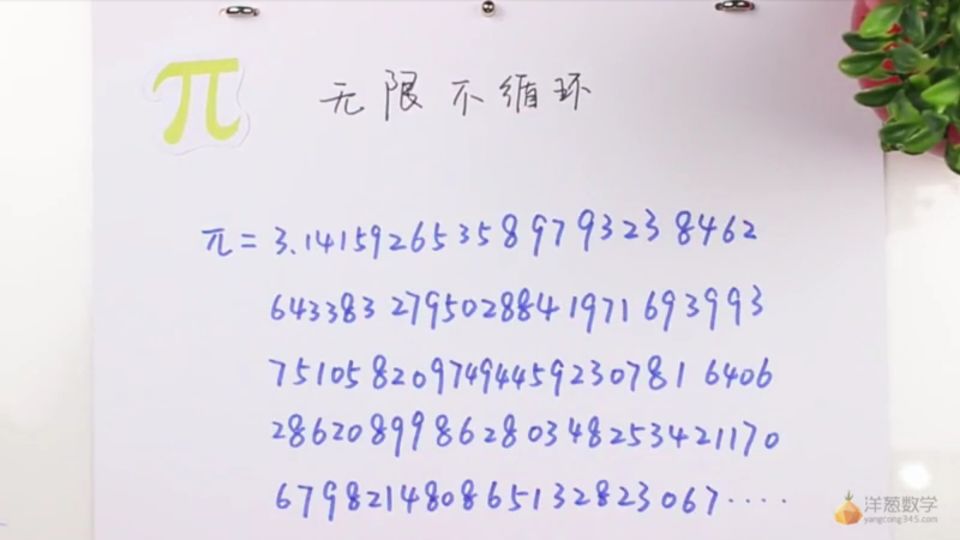 π 无限不循环
π=3.141592653589793238462
643383279502884197169 3993
7510582097494459230781 6406
2862089986280348253421170
67982148086513282306​7....
洋葱数学
yangcong345.com